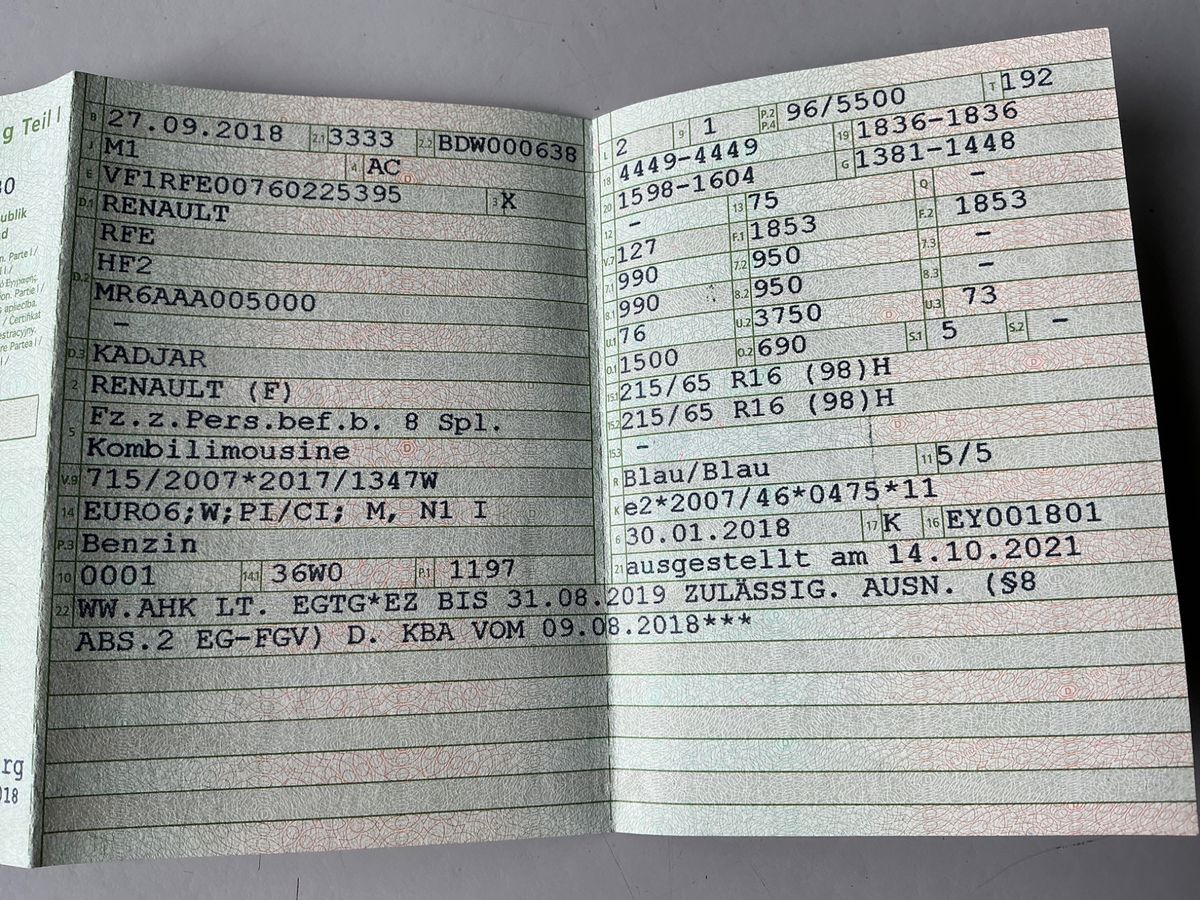 g Teil I
B 27.09.2018 2.1 3333 2.2 BDW000638
J M1 4 AC
E VF1RFE00760225395 3 X
D.1 RENAULT
RFE
D.2 HF2
MR6AAA005000
–
D.3 KADJAR
2 RENAULT (F)
5 Fz.z.Pers.bef.b. 8 Spl.
Kombilimousine
V.9 715/2007*2017/1347W
14 EURO6;W;PI/CI; M, N1 I
P.3 Benzin
10 0001 14.1 36W0 P.1 1197
L 2 9 1 P.2 P.4 96/5500 T 192
18 4449–4449 19 1836–1836
20 1598–1604 G 1381–1448
12 – 13 75 Q –
V.7 127 F.1 1853 F.2 1853
7.1 990 7.2 950 7.3 –
8.1 990 8.2 950 8.3 –
U.1 76 U.2 3750 U.3 73
O.1 1500 O.2 690 S.1 5 S.2 –
15.1 215/65 R16 (98)H
15.2 215/65 R16 (98)H
15.3 –
R Blau/Blau 11 5/5
K e2*2007/46*0475*11
6 30.01.2018 17 K 16 EY001801
21 ausgestellt am 14.10.2021
22 WW.AHK LT. EGTG*EZ BIS 31.08.2019 ZULÄSSIG. AUSN. (§8
ABS.2 EG–FGV) D. KBA VOM 09.08.2018***